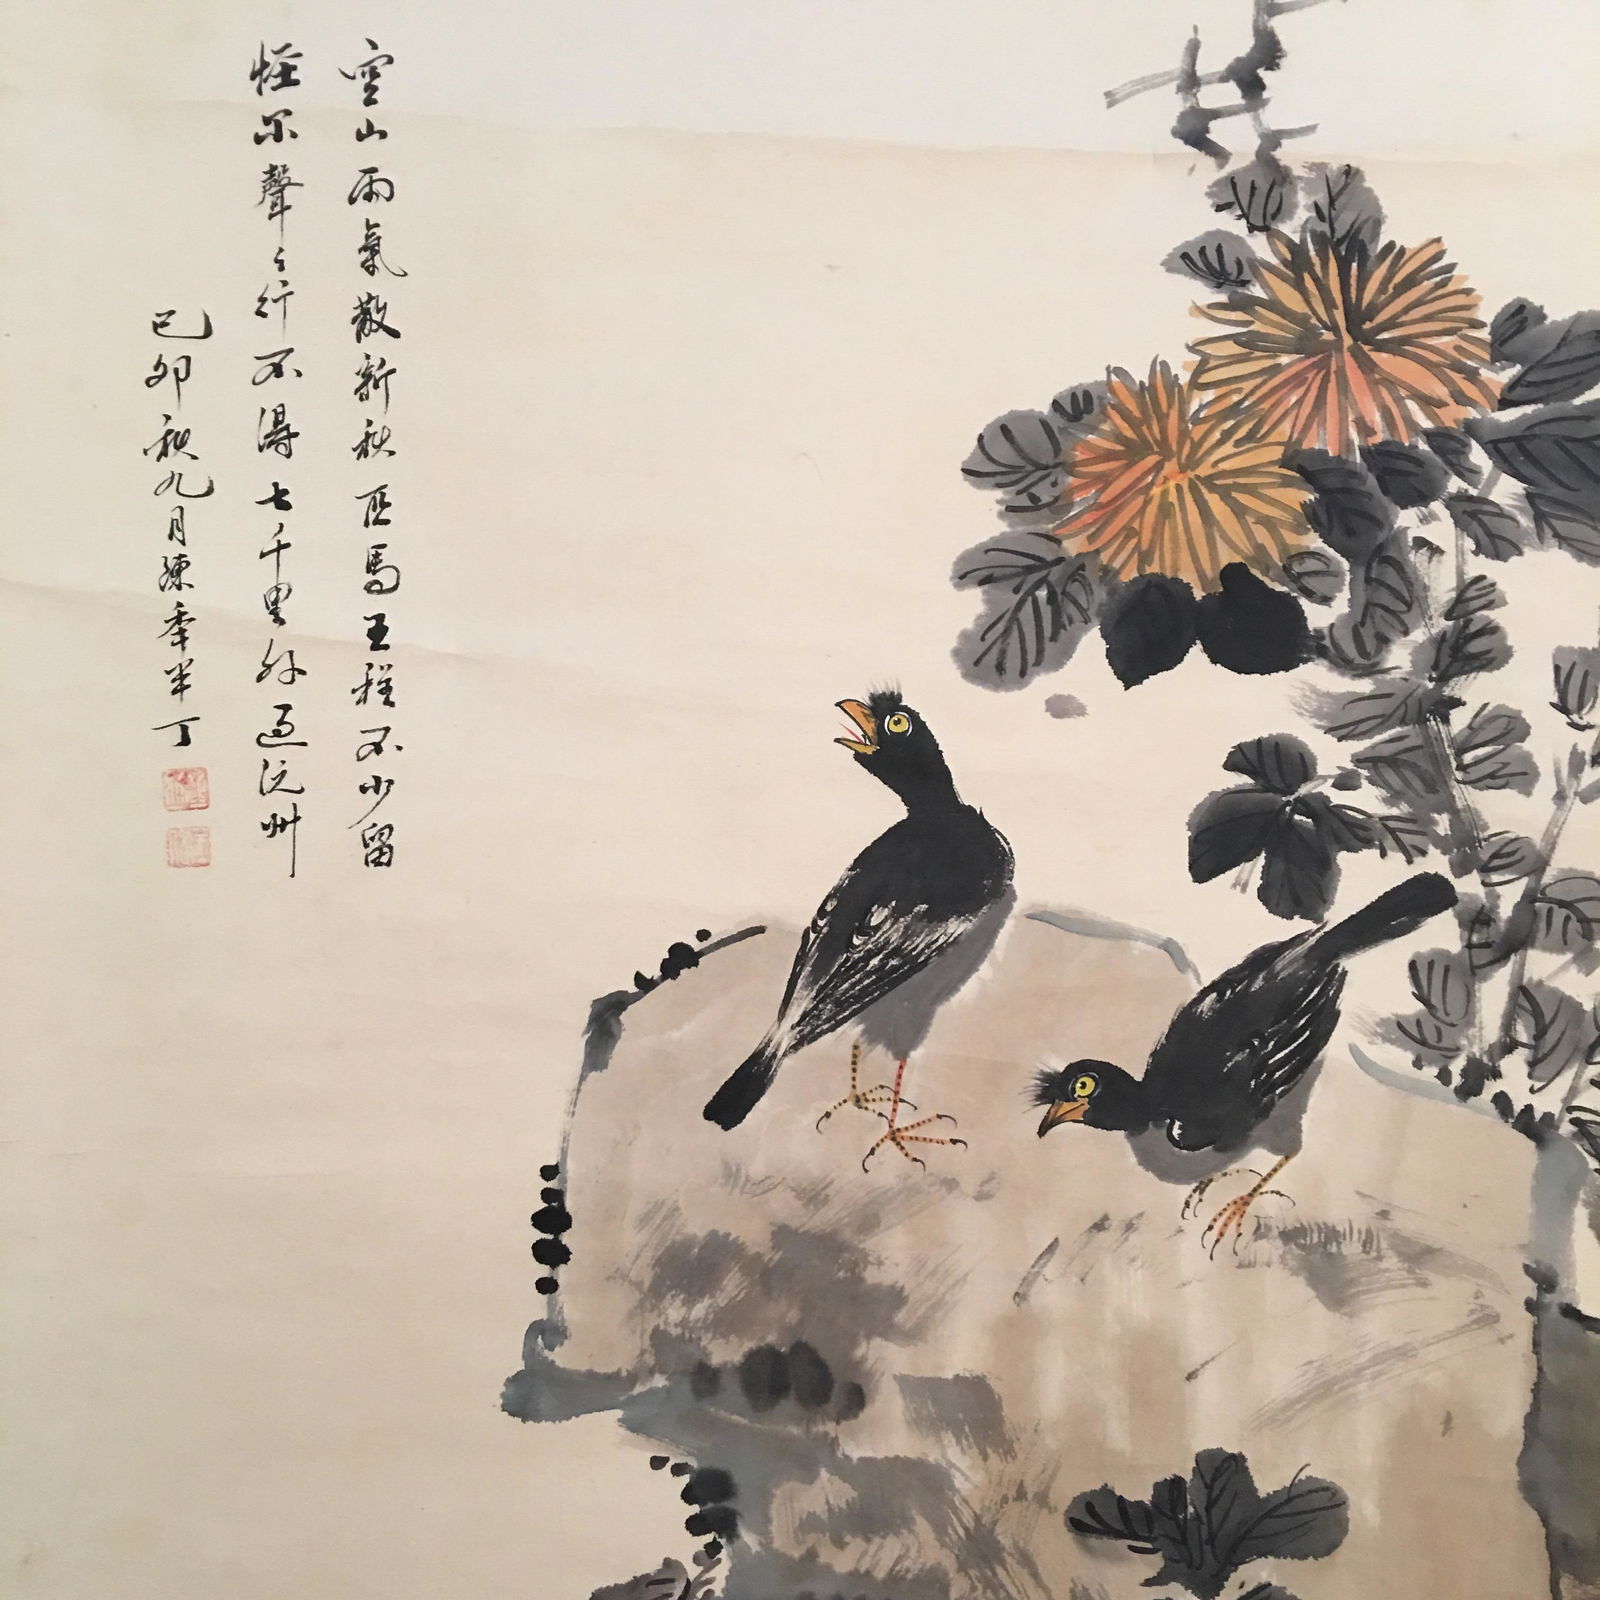 空山雨氣散新秋匹馬王程不少留
怪尔聲〻行不得七千里外過沅州
己卯秋九月陳年半丁